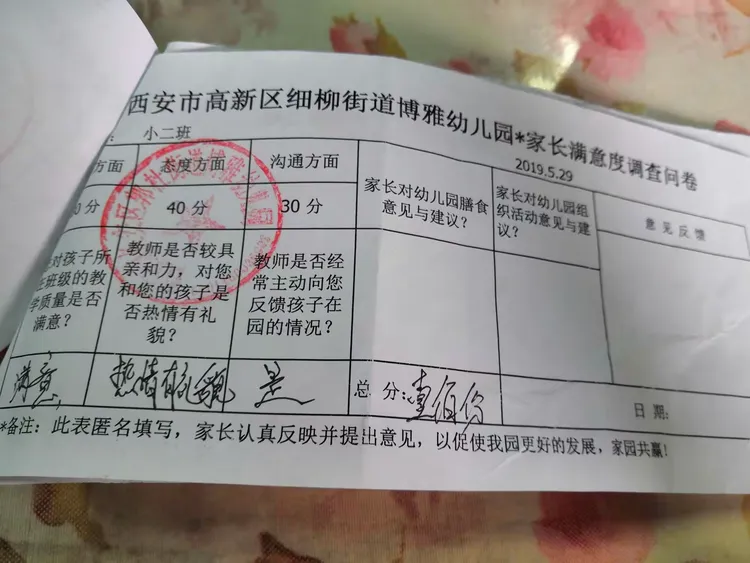 西安市高新区细柳街道博雅幼儿园*家长满意度调查问卷
小二班
2019.5.29
方面
态度方面
沟通方面
家长对幼儿园膳食
意见与建议?
家长对幼儿园组
织活动意见与建
议?
意见反馈
0分
40分
30分
对孩子所
在班级的教
学质量是否
满意?
教师是否较具
亲和力,对您
和您的孩子是
否热情有礼
貌?
教师是否经
常主动向您
反馈孩子在
园的情况?
满意
热情有礼貌
是
总 分:壹佰分
日期:
*备注:此表匿名填写,家长认真反映并提出意见,以促使我园更好的发展,家园共赢!